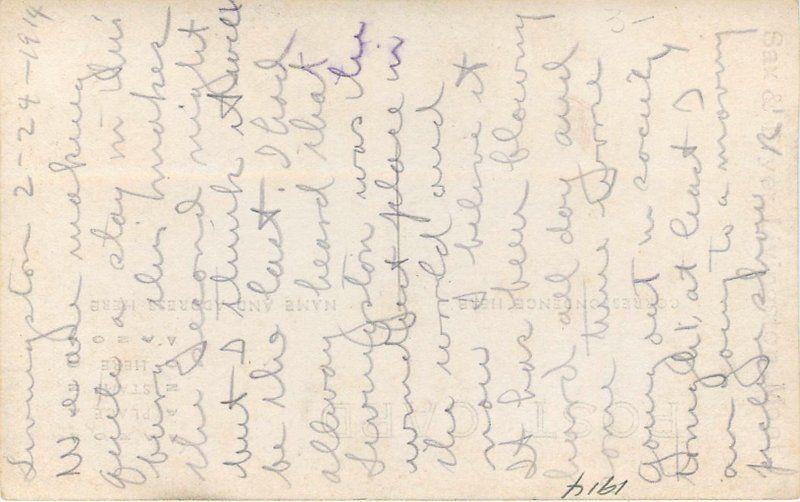 Livingston 2-24-1914
We are making
quite a stay in this
burg this makes
the second night
but I think it will
be the last. I had
allway heard that
Livingston was the
windbest place in
the world and
now I beleve it
It has been blowing
hard all day and
same time we are
going out in society
tonight, at least I
am going to a moving
picture show
1914
POST CARD
CORRESPONDENCE HERE
NAME AND ADDRESS HERE
PLACE
STAMP
HERE